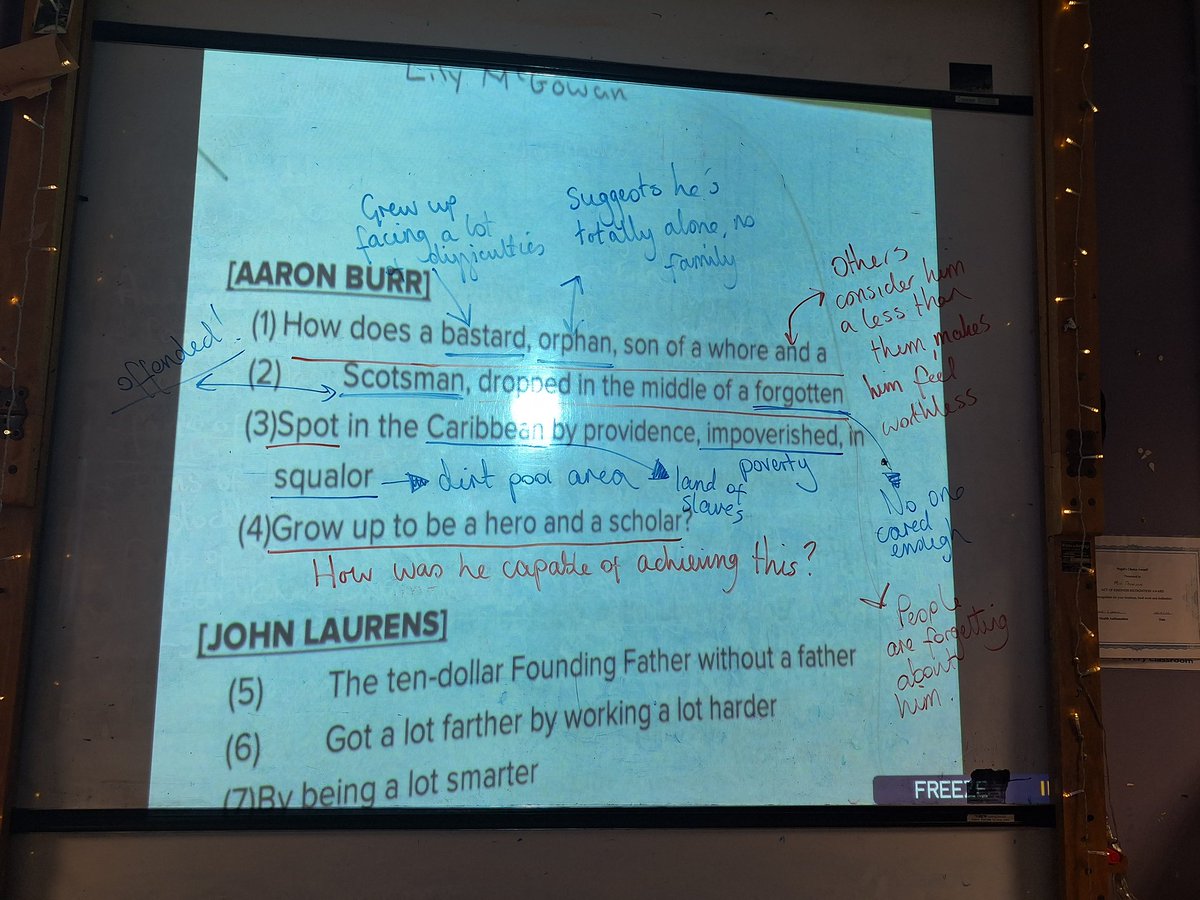 Lily McGowan
Grew up
facing a lot
of difficulties
Suggests he's
totally alone, no
family
[AARON BURR]
(1) How does a bastard, orphan, son of a whore and a
(2) Scotsman, dropped in the middle of a forgotten
(3)Spot in the Caribbean by providence, impoverished, in
squalor → dirt poor area
land of
slaves
poverty
(4)Grow up to be a hero and a scholar?
How was he capable of achieving this?
offended!
others
consider him
a less than
them, makes
him feel
worthless
No one
cared
enough
People
are forgetting
about
him.
[JOHN LAURENS]
(5) The ten-dollar Founding Father without a father
(6) Got a lot farther by working a lot harder
(7)By being a lot smarter
FREEZE